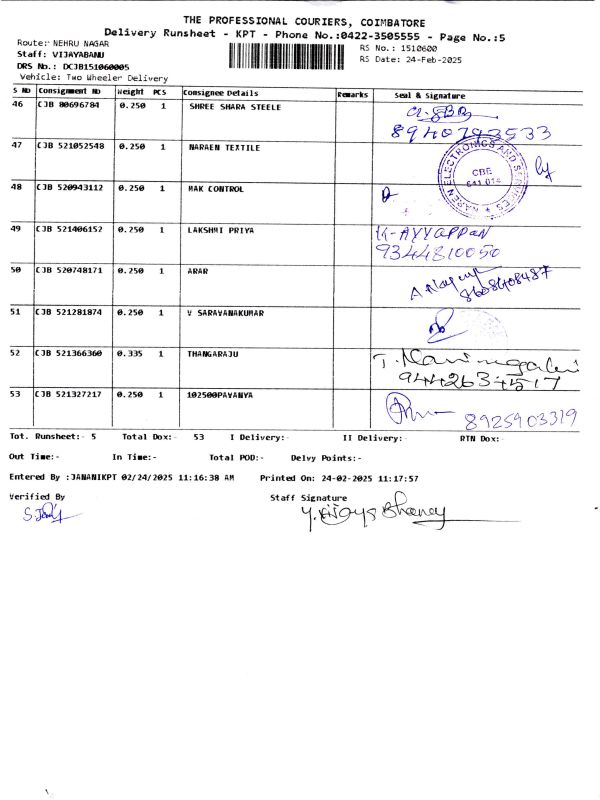 THE PROFESSIONAL COURIERS, COIMBATORE
Delivery Runsheet - KPT - Phone No.:0422-3505555 - Page No.:5
Route: NEHRU NAGAR
RS No.: 1510600
Staff: VIJAYABANU
RS Date: 24-Feb-2025
DRS No.: DCJB151060005
Vehicle: Two Wheeler Delivery
S No Consignment No Weight PCS Consignee Details Remarks Seal & Signature
46 CJB 80696784 0.250 1 SHREE SHARA STEELE
8940793533
47 CJB 521052548 0.250 1 NARAEN TEXTILE
NAREN ELECTRONICS AND SERVICES
CBE
641 014
48 CJB 520943112 0.250 1 MAK CONTROL
49 CJB 521406152 0.250 1 LAKSHMI PRIYA K-AYYAPPAN
9344810050
50 CJB 520748171 0.250 1 ARAR
8608408487
51 CJB 521281874 0.250 1 V SARAVANAKUMAR
52 CJB 521366360 0.335 1 THANGARAJU
9442634517
53 CJB 521327217 0.250 1 102500PAVANYA 8925903319
Tot. Runsheet:- 5 Total Dox:- 53 I Delivery:- II Delivery:- RTN Dox:-
Out Time:- In Time:- Total POD:- Delvy Points:-
Entered By :JANANIKPT 02/24/2025 11:16:38 AM Printed On: 24-02-2025 11:17:57
Verified By Staff Signature